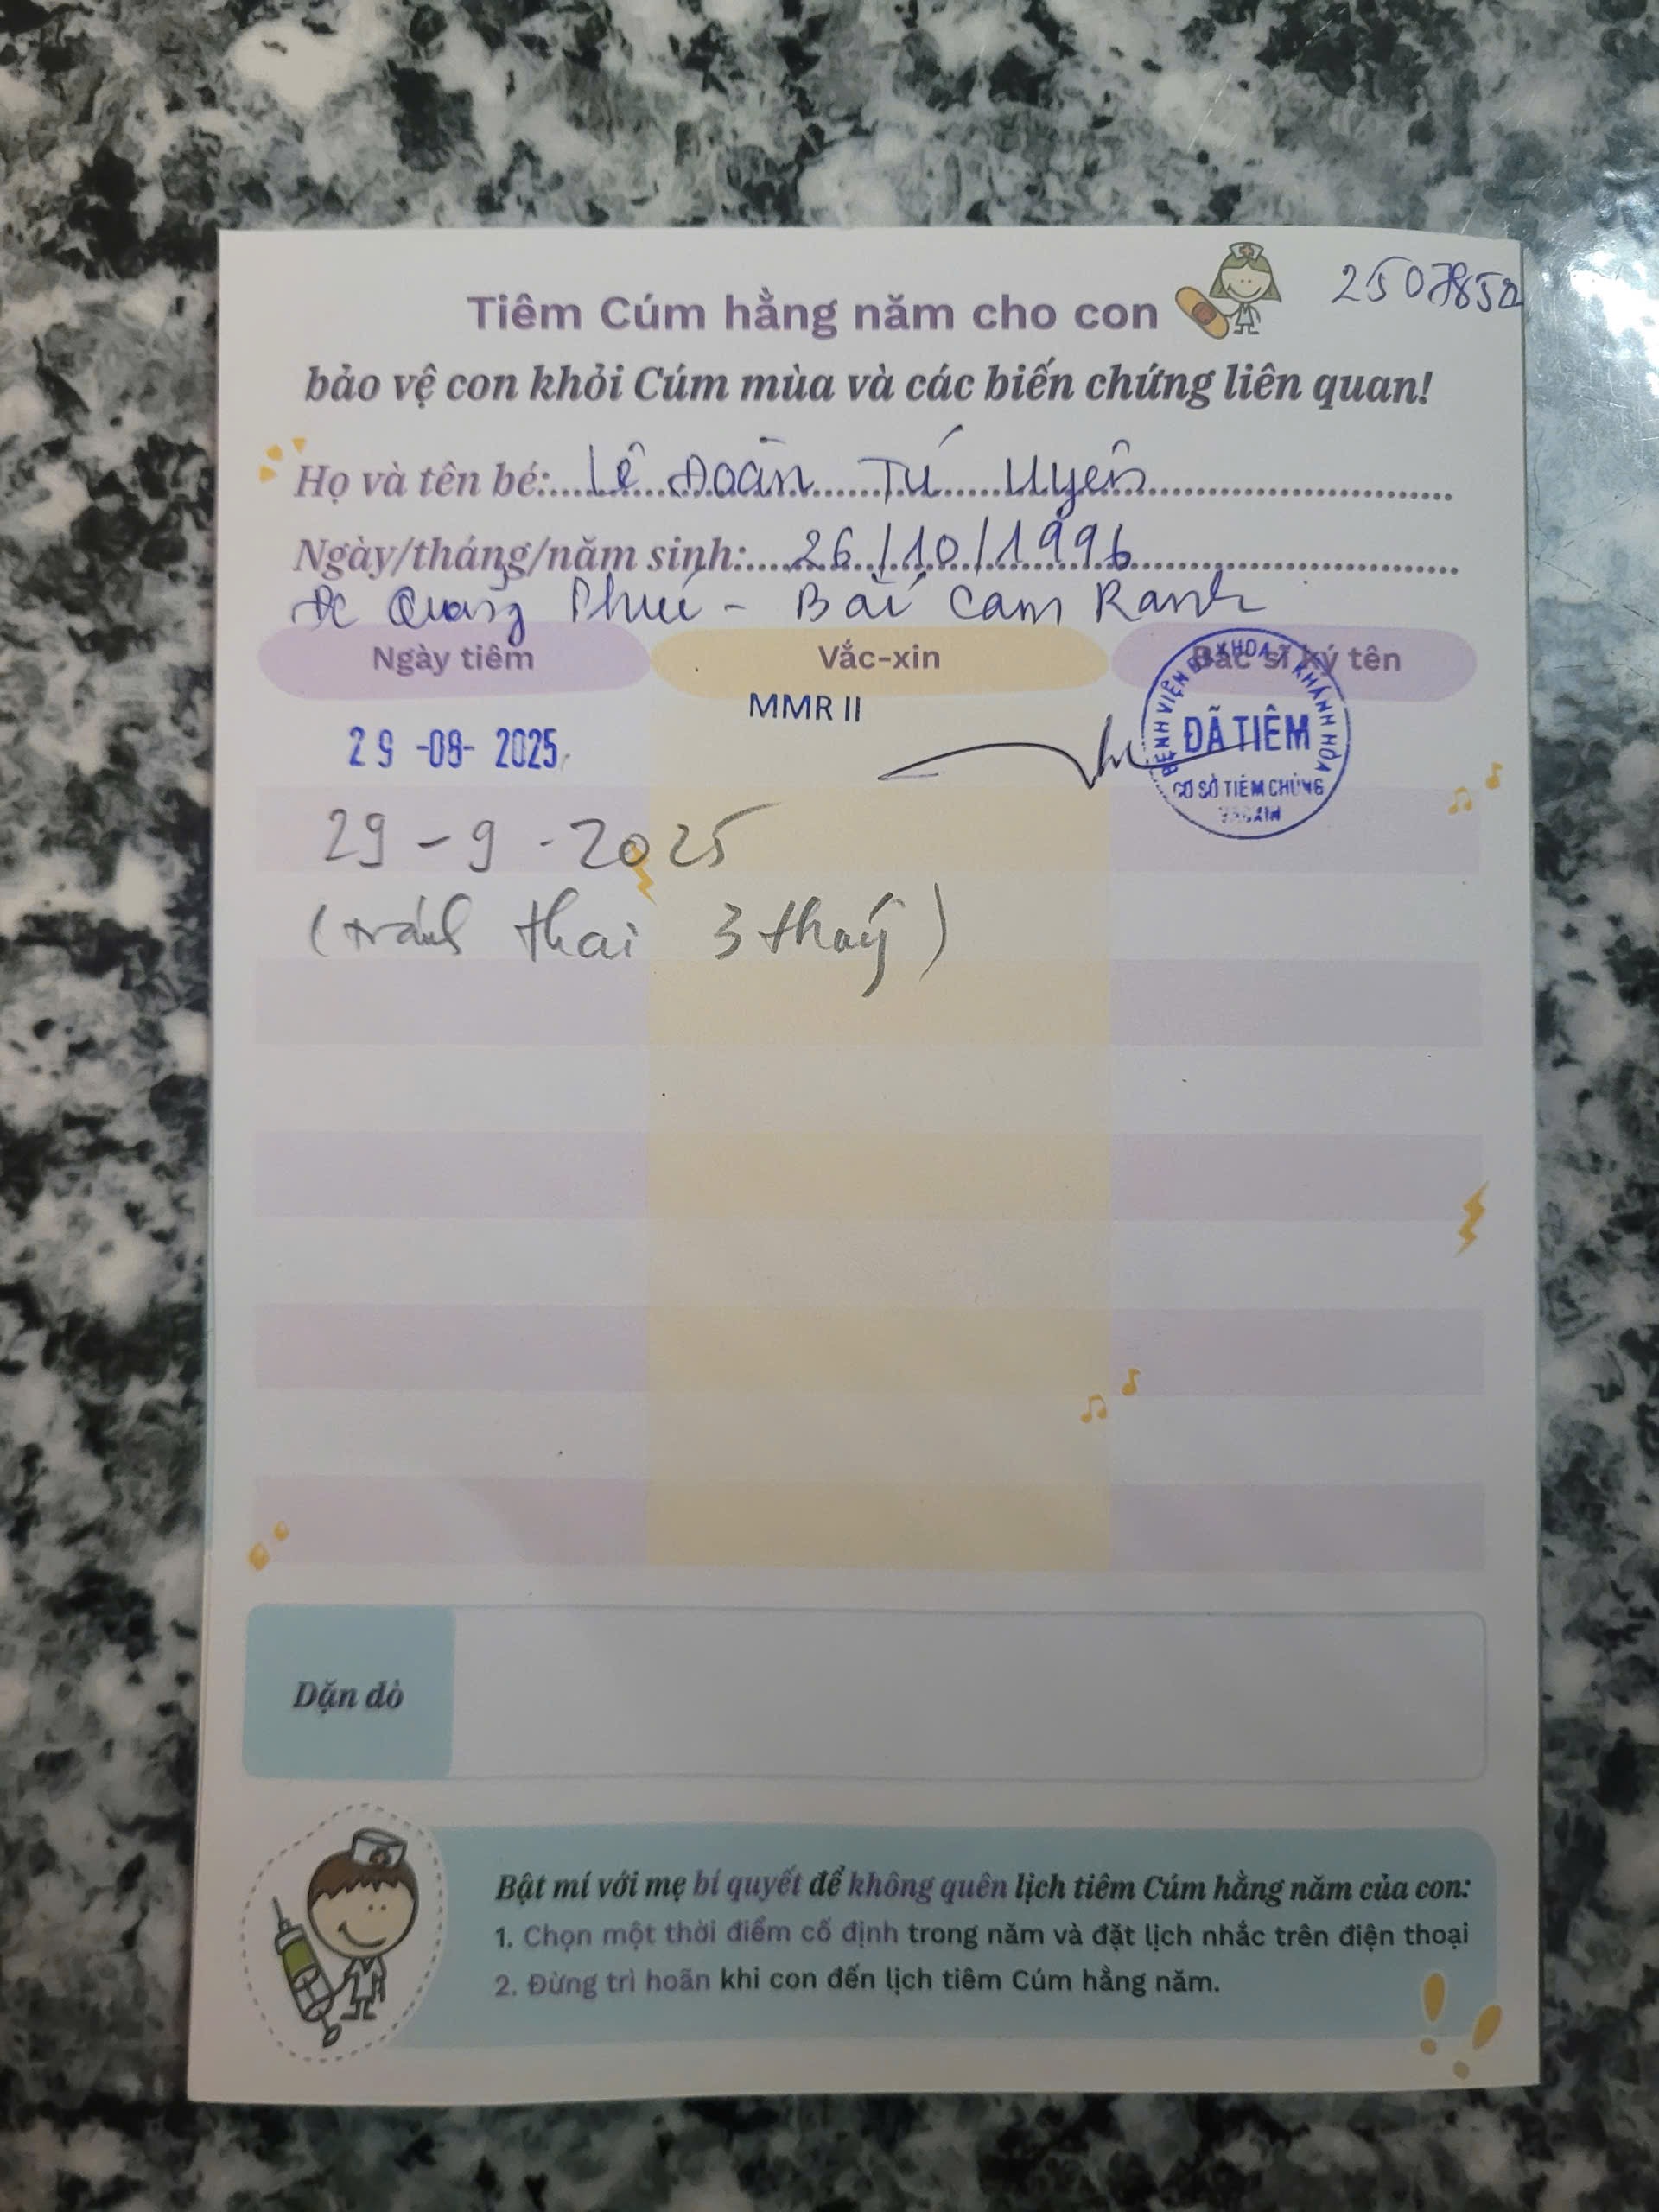 2507850
Tiêm Cúm hằng năm cho con
bảo vệ con khỏi Cúm mùa và các biến chứng liên quan!
Họ và tên bé: Lê Đoàn Tú Uyên
Ngày/tháng/năm sinh: 26/10/1996
ĐC Quảng Phúc - Bãi Cam Ranh
Ngày tiêm Vắc-xin Bác sĩ ký tên
MMR II
29-08-2025
BỆNH VIỆN ĐA KHOA T KHÁNH HÒA
ĐÃ TIÊM
CƠ SỞ TIÊM CHỦNG
VACXIN
29-9-2025
(tránh thai 3 tháng)
Dặn dò
Bật mí với mẹ bí quyết để không quên lịch tiêm Cúm hằng năm của con:
1. Chọn một thời điểm cố định trong năm và đặt lịch nhắc trên điện thoại
2. Đừng trì hoãn khi con đến lịch tiêm Cúm hằng năm.